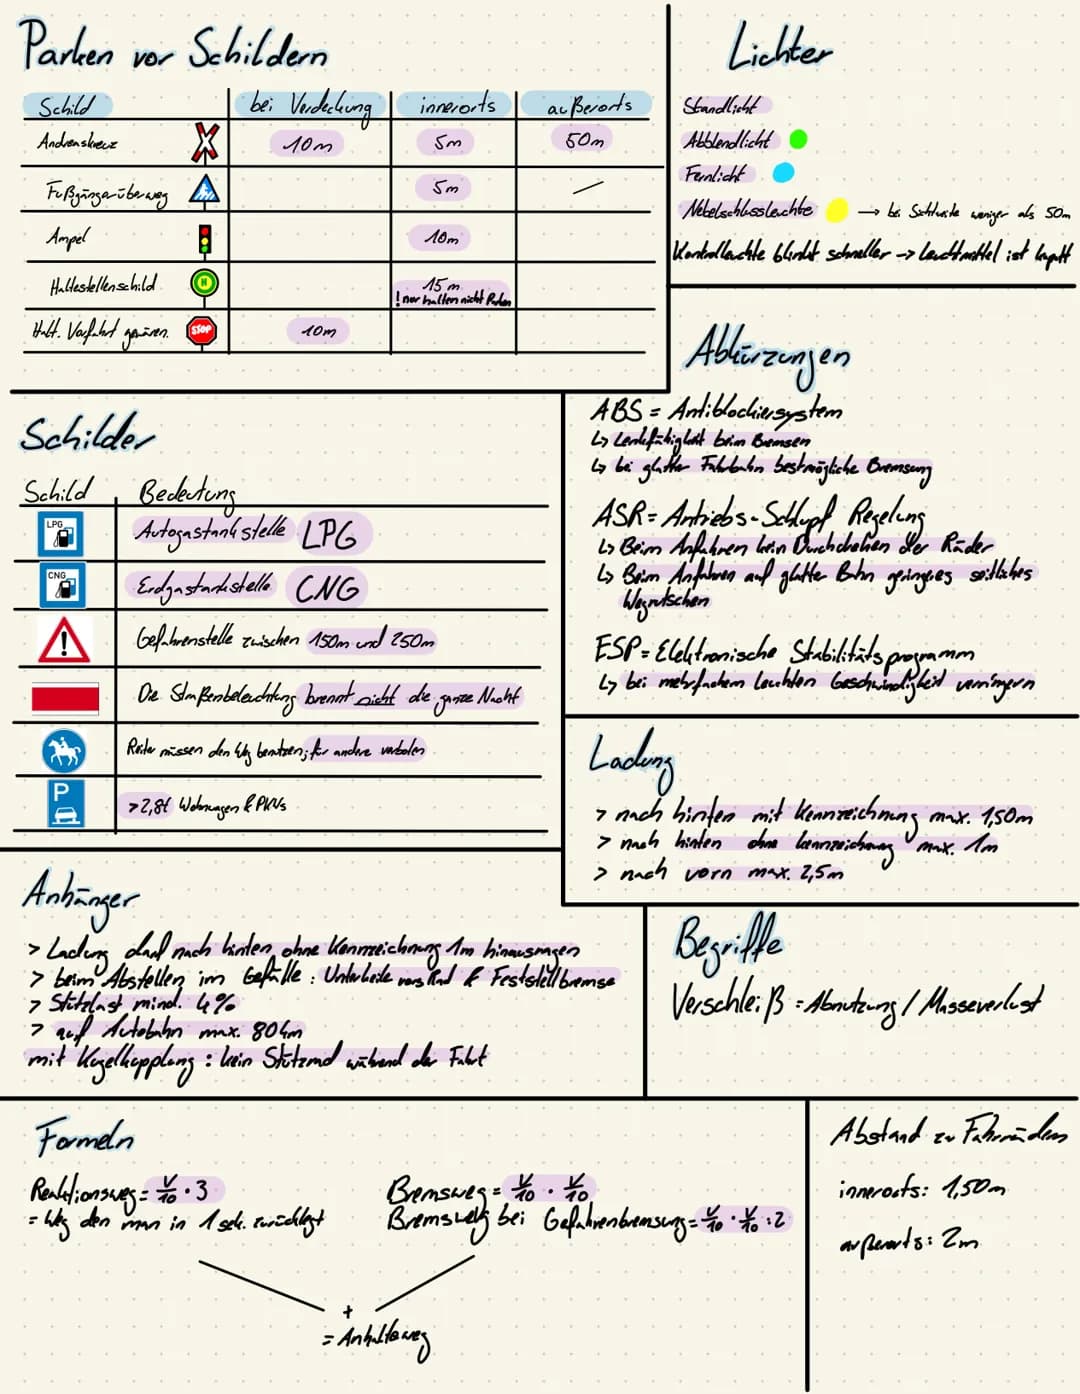 Parken vor Schildern
Schild bei Verdeckung innerorts außerorts
Andreaskreuz 10m 5m 50m
Fußgängerüberweg 5m /
Ampel 10m
Haltestellenschild H 15m
! nur halten nicht Parken
Halt. Vorfahrt gewären. STOP 10m
Lichter
Standlicht
Abblendlicht
Fernlicht
Nebelschlussleuchte → bei Sichtweite weniger als 50m
Kontrolleuchte blinkt schneller → Leuchtmittel ist kaputt
Abkürzungen
ABS = Antiblockiersystem
↳ Lenkfähigkeit beim Bremsen
↳ bei glatter Fahrbahn bestmögliche Bremsung
ASR = Antriebs-Schlupf Regelung
↳ Beim Anfahren kein Durchdrehen der Räder
↳ Beim Anfahren auf glatter Bahn geringeres seitliches
Wegrutschen
ESP = Elektronische Stabilitätsprogramm
↳ bei mehrfachem leuchten Geschwindigkeit verringern
Schilder
Schild Bedeutung
LPG Autogastankstelle LPG
CNG Erdgastankstelle CNG
! Gefahrenstelle zwischen 150m und 250m
Die Straßenbeleuchtung brennt nicht die ganze Nacht
Reiter müssen den Weg benutzen; für andere verboten
P >2,8t Wohnwagen & PKWs
Ladung
> nach hinten mit Kennzeichnung max. 1,50m
> nach hinten ohne kennzeichnung max. 1m
> nach vorn max. 2,5m
Anhänger
> Ladung darf nach hinten ohne Kennzeichnung 1m hinausragen
> beim Abstellen im Gefälle: Unterkeile vors Rad & Feststellbremse
> Stützlast mind. 4%
> auf Autobahn max. 80km
mit Kugelkopplung: kein Stützrad während der Fahrt
Begriffe
Verschleiß = Abnutzung / Masseverlust
Formeln
Reaktionsweg = V/10 · 3
= Weg den man in 1 sek. zurücklegt
Bremsweg = V/10 · V/10
Bremsweg bei Gefahrenbremsung = V/10 · V/10 : 2
+
= Anhalteweg
Abstand zu Fahrrädern
innerorts: 1,50m
außerorts: 2m